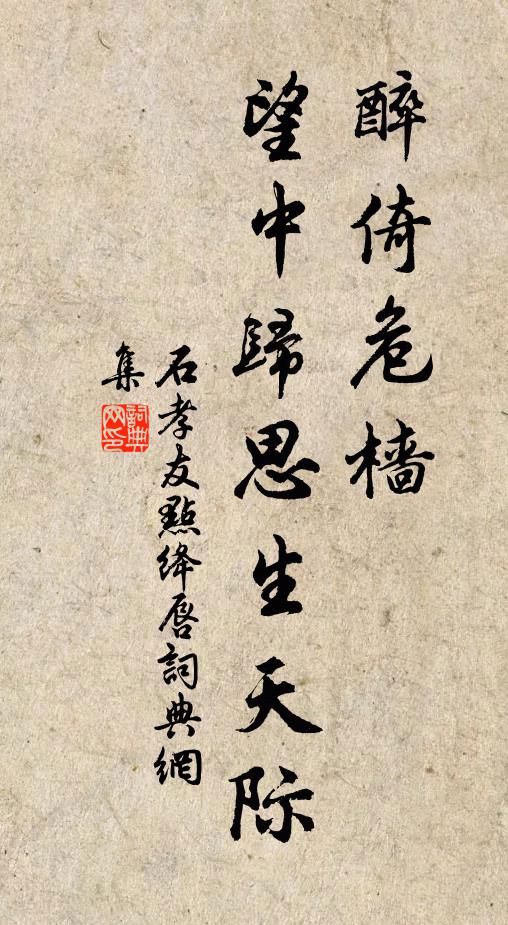 醉倚危檣
望中歸思生天际
石孝友點绛唇詞典網
集
詞典
网印